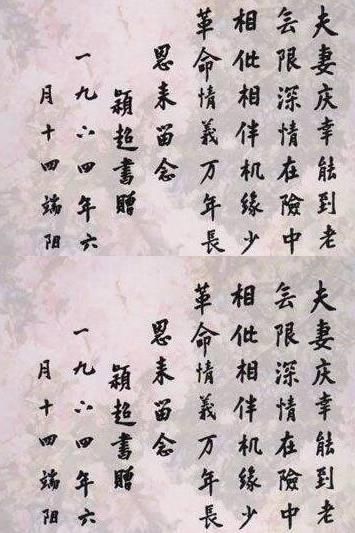 夫妻庆幸能到老
无限深情在險中
相伲相伴机缘少
革命情義万年長
恩来留念
颖超書贈
一九六四年六
月十四端阳
夫妻庆幸能到老
无限深情在險中
相伲相伴机缘少
革命情義万年長
恩来留念
颖超書贈
一九六四年六
月十四端阳